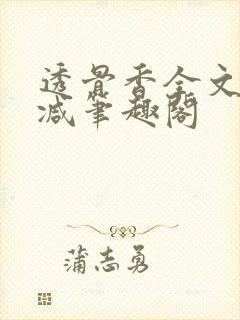 透骨香全文
减笔趣阁
蒲志勇